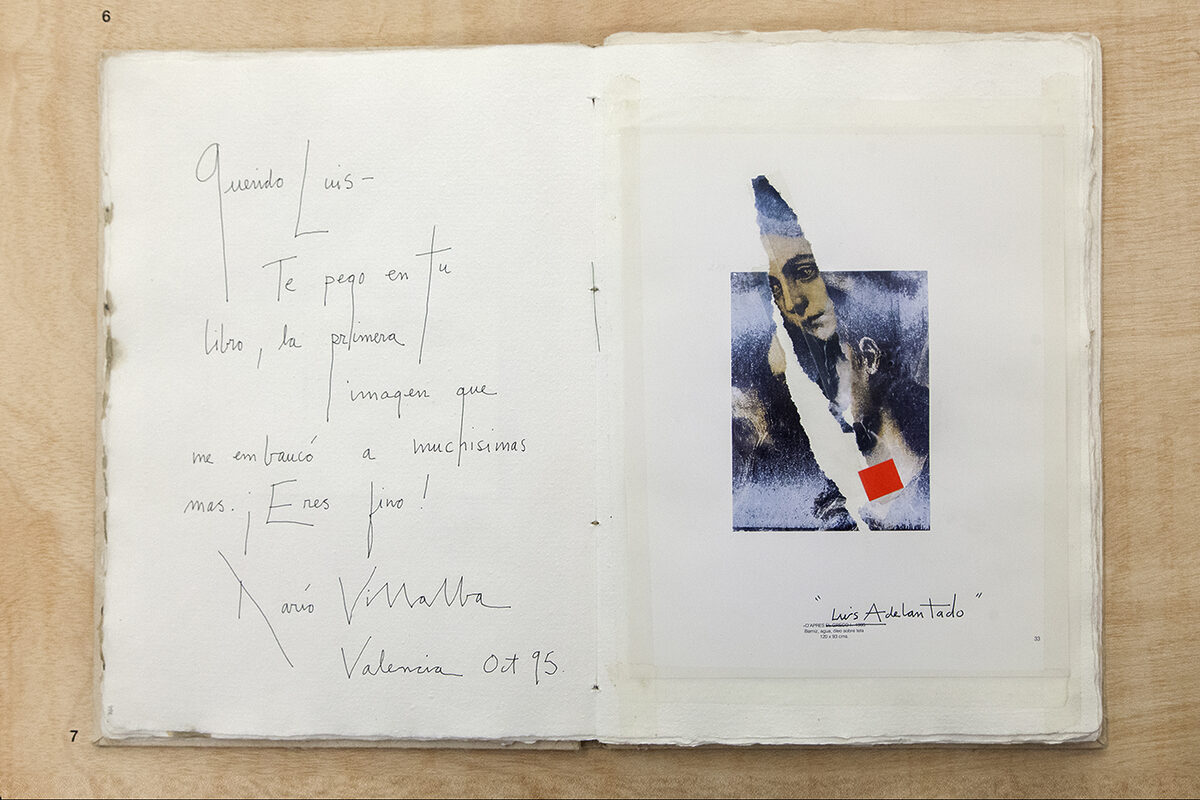 6
Querido Luis-
Te pego en tu
libro, la primera
imagen que
me embaucó a muchisimas
mas. ¡Eres fino!
Darío Villalba
Valencia Oct 95.
7
"Luis Adelantado"
«D'APRES EL GRECO I. 1995
Barniz, agua, óleo sobre tela
120 x 93 cms.
33